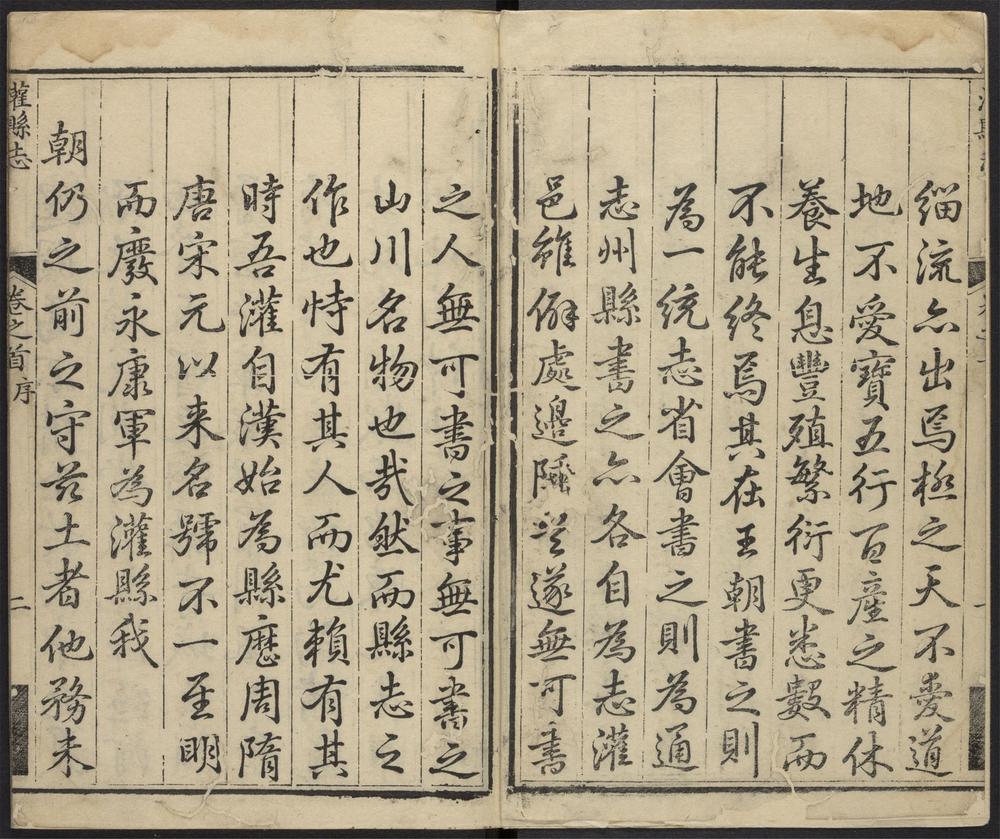 緇流亦出焉極之天不愛道
地不愛寶五行百產之精休
養生息豐殖繁衍更悉數而
不能終焉其在王朝書之則
為一統志省會書之則為通
志州縣書之亦各自為志灌
邑雖僻處邊陲豈遂無可書
之人無可書之事無可書之
山川名物也哉然而縣志之
作也恃有其人而尤賴有其
時吾灌自漢始為縣歷周隋
唐宋元以来名號不一至明
而廢永康軍為灌縣我
朝仍之前之守兹土者他務未
灌縣志 卷之首 序 二